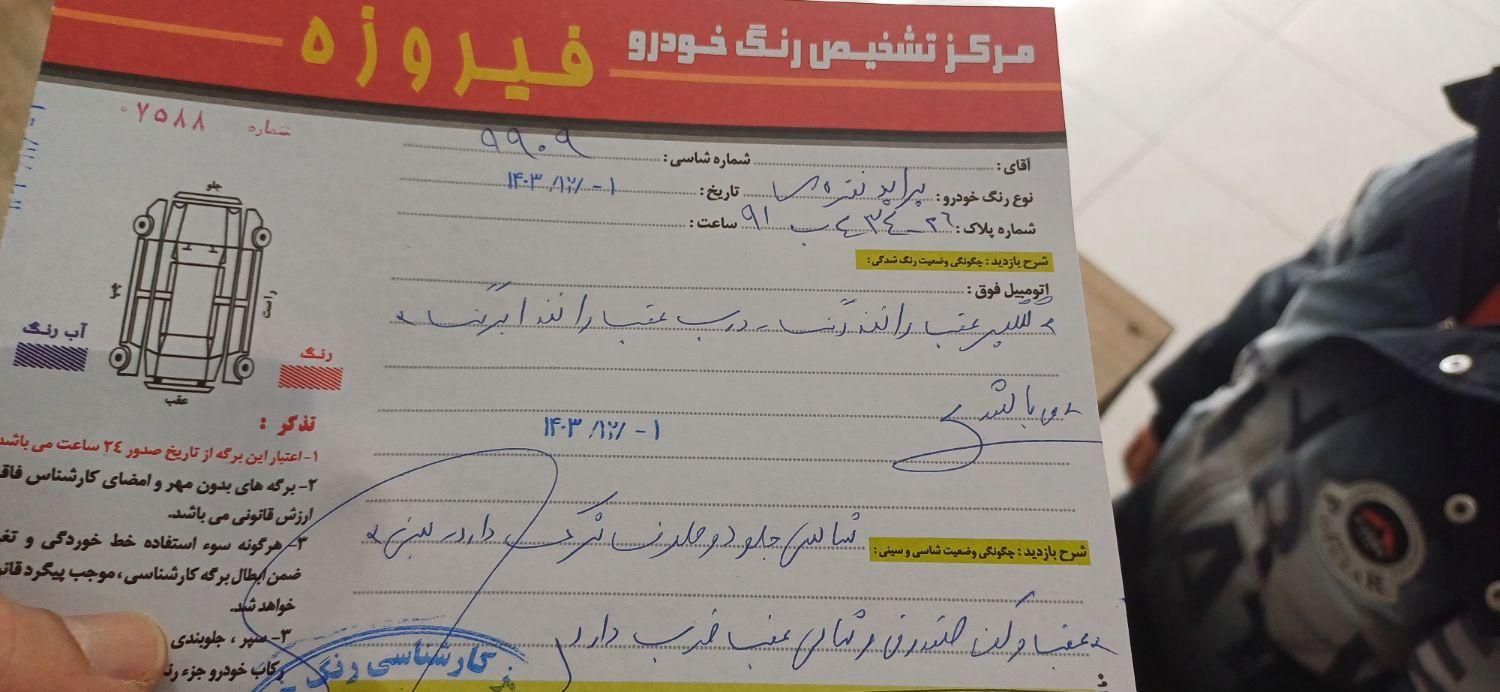 مرکز تشخیص رنگ خودرو فیروزه
شماره ۰۷۵۸۸
آقای : شماره شاسی : ۹۹۰۹
نوع رنگ خودرو : پراید نقره‌ای تاریخ : ۱۴۰۳/۱۲/۰۱
شماره پلاک : ۲۶-۴۳۴ ب ۹۱ ساعت :
شرح بازدید : چگونگی وضعیت رنگ شدگی :
اتومبیل فوق :
گلگیر عقب راننده رنگ درب عقب راننده آبرنگ
می باشد
۱۴۰۳/۱۲/۰۱
شرح بازدید : چگونگی وضعیت شاسی و سینی : شاسی جلو دو طرف خوردگی دارد سینی
عقب و کف صندوق و شاسی عقب ضرب دارد
جلو
چپ
راست
عقب
آب رنگ
رنگ
تذکر :
۱- اعتبار این برگه از تاریخ صدور ۲۴ ساعت می باشد
۲- برگه های بدون مهر و امضای کارشناس
ارزش قانونی می باشد.
۳- هرگونه سوء استفاده خط خوردگی و
ضمن ابطال برگه کارشناسی ، موجب پیگرد
خواهد شد.
۳- سپر ، جلوبندی
رکاب خودرو جزء
کارشناسی رنگ